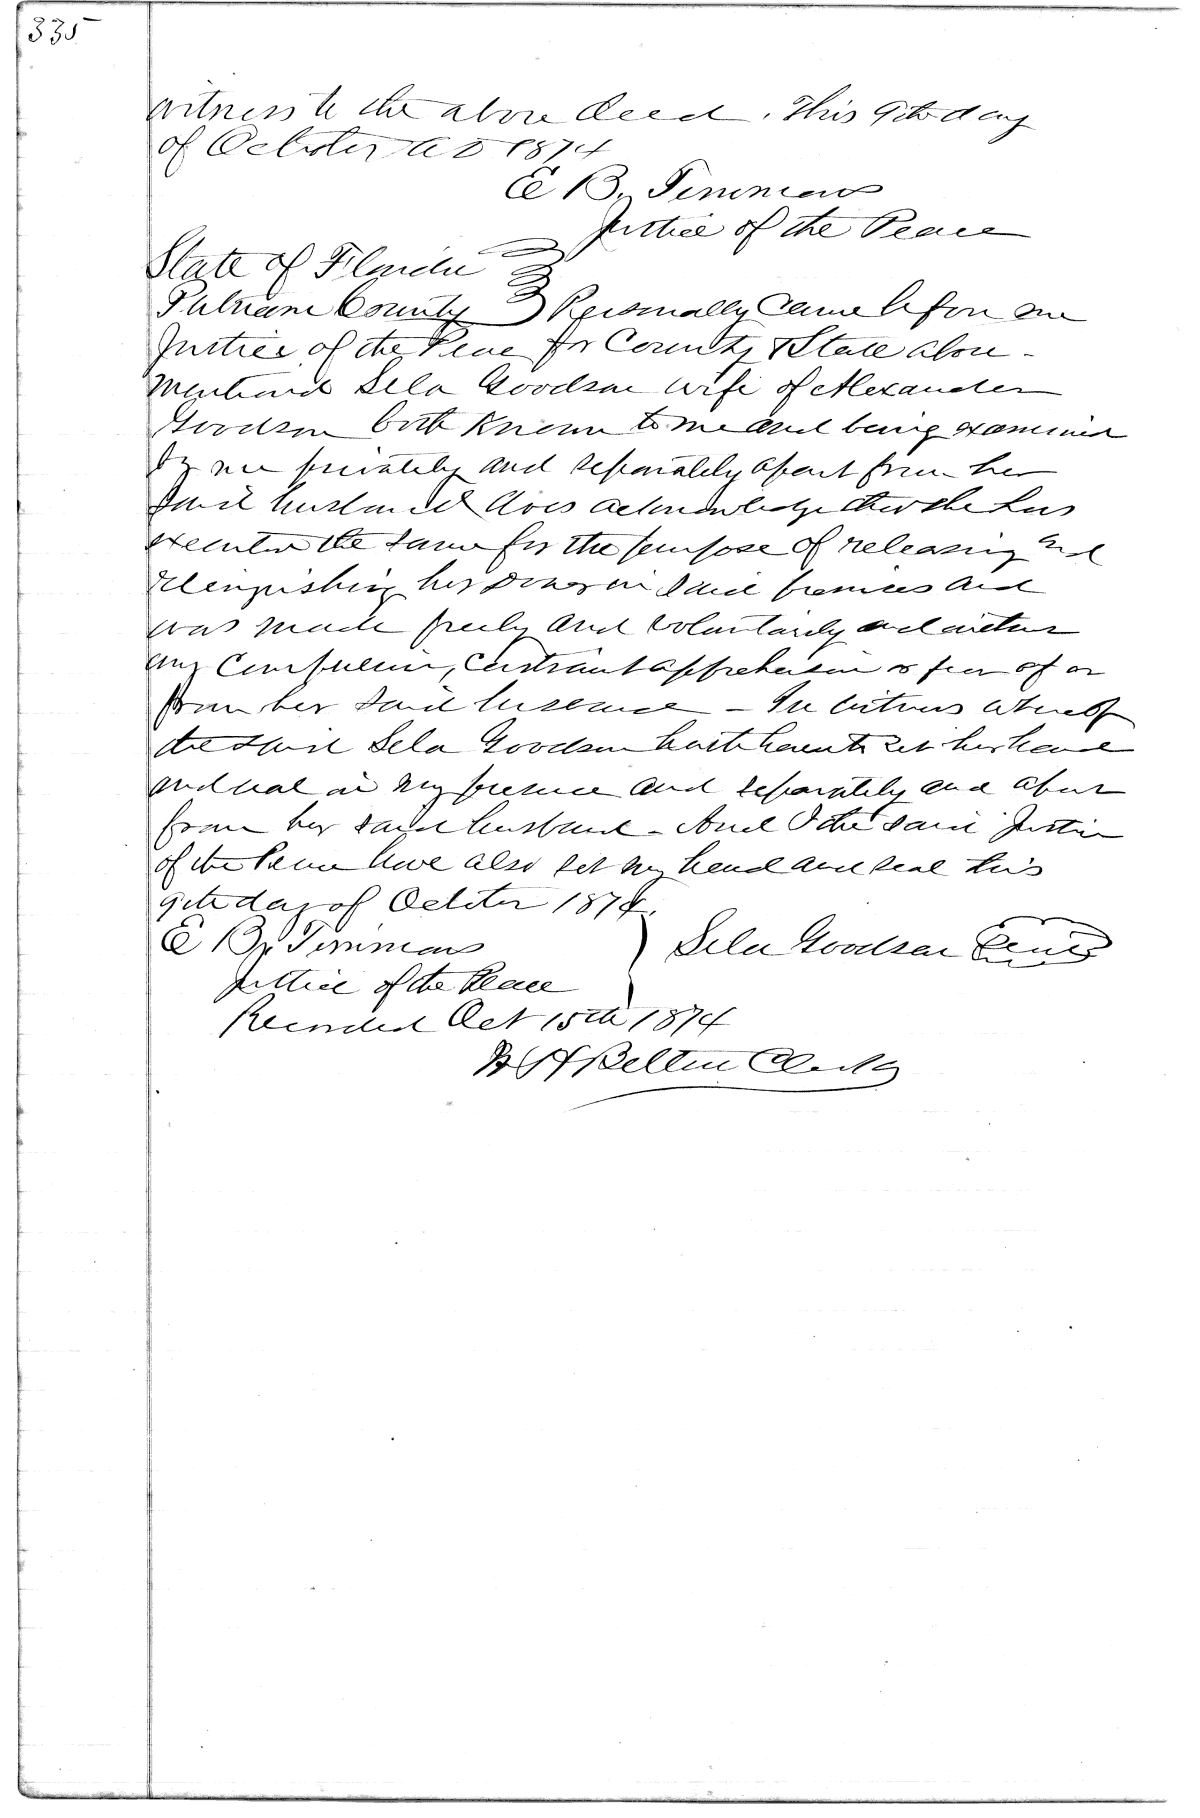 335
witness to the above deed. This 9th day
of October AD 1874
E B. Timmons
Justice of the Peace
State of Florida
Putnam County Personally came before me
Justice of the Peace for County & State above
mentioned Sela Goodson wife of Alexander
Goodson both known to me and being examined
by me privately and separately apart from her
said husband does acknowledge that she has
executed the same for the purpose of releasing and
relinquishing her dower in said premises and
was made freely and voluntarily and without
any compulsion, constraint apprehension or fear of or
from her said husband - In witness whereof
the said Sela Goodson hath hereunto set her hand
and seal in my presence and separately and apart
from her said husband - And I the said Justice
of the Peace have also set my hand and seal this
9th day of October 1874.
E B. Timmons Sela Goodson
Justice of the Peace
Recorded Oct 15th 1874
Clerk